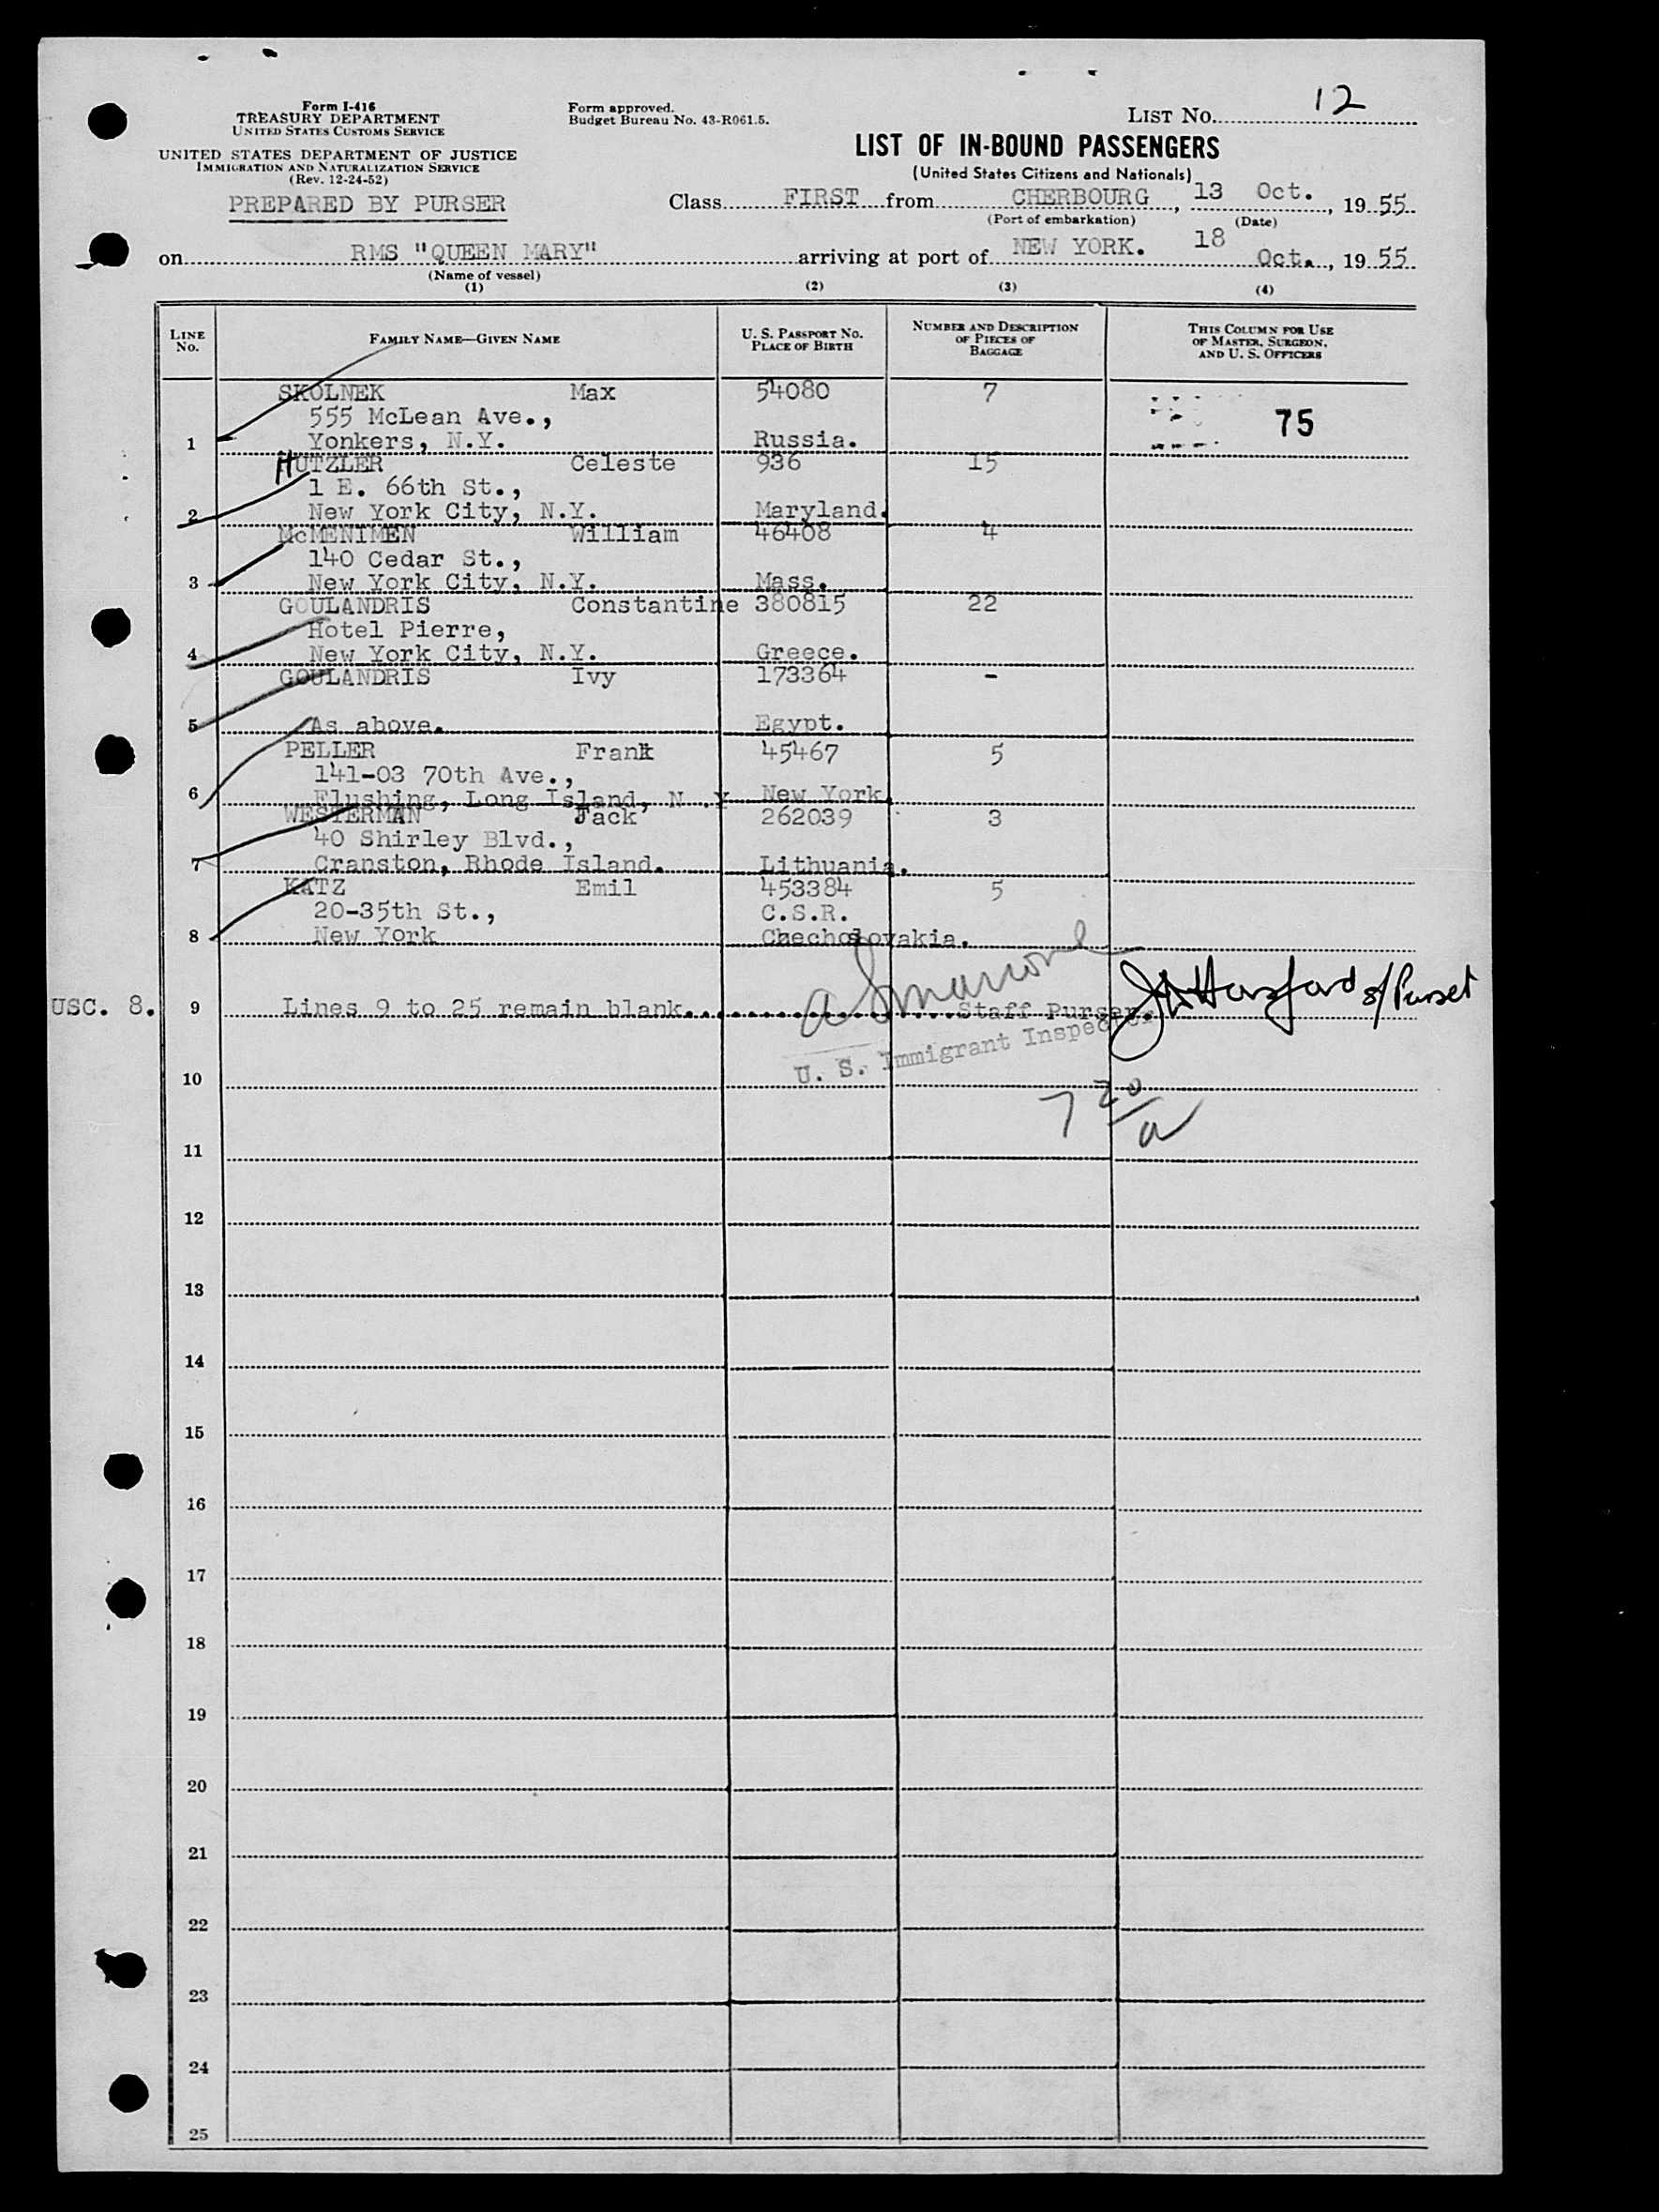 Form I-416
TREASURY DEPARTMENT
UNITED STATES CUSTOMS SERVICE
UNITED STATES DEPARTMENT OF JUSTICE
IMMIGRATION AND NATURALIZATION SERVICE
(Rev. 12-24-52)
PREPARED BY PURSER
Form approved.
Budget Bureau No. 43-R061.5.
LIST NO. 12
LIST OF IN-BOUND PASSENGERS
(United States Citizens and Nationals)
Class FIRST from CHERBOURG, 13 Oct., 1955
(Port of embarkation) (Date)
on RMS "QUEEN MARY" arriving at port of NEW YORK. 18 Oct., 1955
(Name of vessel)
(1) (2) (3) (4)
LINE NO. FAMILY NAME—GIVEN NAME U. S. PASSPORT NO. PLACE OF BIRTH NUMBER AND DESCRIPTION OF PIECES OF BAGGAGE THIS COLUMN FOR USE OF MASTER, SURGEON, AND U. S. OFFICERS
SKOLNEK Max 54080 7
555 McLean Ave., 75
1 Yonkers, N.Y. Russia.
HUTZLER Celeste 936 15
1 E. 66th St.,
2 New York City, N.Y. Maryland.
McMENIMEN William 46408 4
140 Cedar St.,
3 New York City, N.Y. Mass.
GOULANDRIS Constantine 380815 22
Hotel Pierre,
4 New York City, N.Y. Greece.
GOULANDRIS Ivy 173364 -
5 As above. Egypt.
PELLER Frank 45467 5
141-03 70th Ave.,
6 Flushing, Long Island, N.Y New York
WESTERMAN Jack 262039 3
40 Shirley Blvd.,
7 Cranston, Rhode Island. Lithuania.
KATZ Emil 453384 5
20-35th St., C.S.R.
8 New York Czechoslovakia.
USC. 8. 9 Lines 9 to 25 remain blank. Staff Purser. s/Purser
U. S. Immigrant Inspector
10
7 20/a
11
12
13
14
15
16
17
18
19
20
21
22
23
24
25